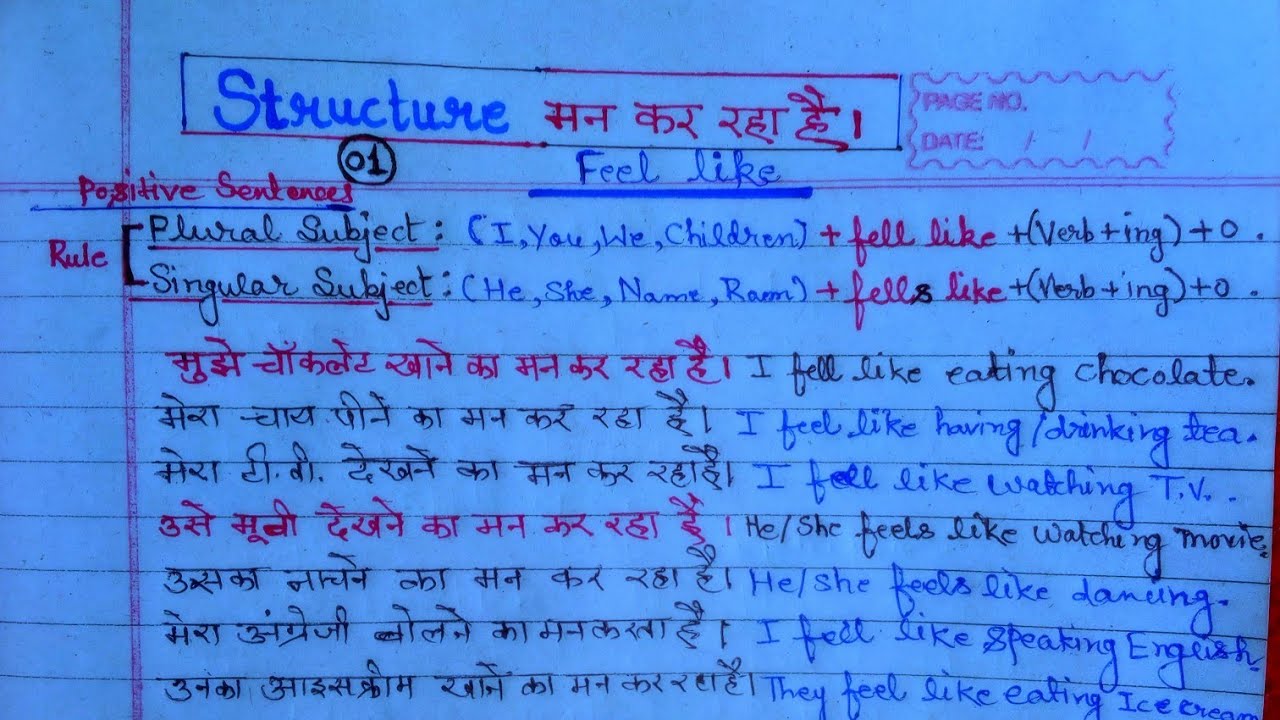 Structure मन कर रहा है।
PAGE NO.
DATE: / /
01
Feel like
Positive Sentences
Rule
Plural Subject: (I, You, We, Children) + fell like +(Verb+ing)+O.
Singular Subject: (He, She, Name, Ram) + fells like +(Verb+ing)+O.
मुझे चॉकलेट खाने का मन कर रहा है। I fell like eating chocolate.
मेरा चाय पीने का मन कर रहा है। I feel like having/drinking tea.
मेरा टी.वी. देखने का मन कर रहा है। I feel like watching T.V..
उसे मूवी देखने का मन कर रहा है। He/She feels like watching movie.
उसका नाचने का मन कर रहा है। He/She feels like dancing.
मेरा अंग्रेजी बोलने का मन करता है। I feel like speaking English.
उनका आइसक्रीम खाने का मन कर रहा है। They feel like eating Ice cream